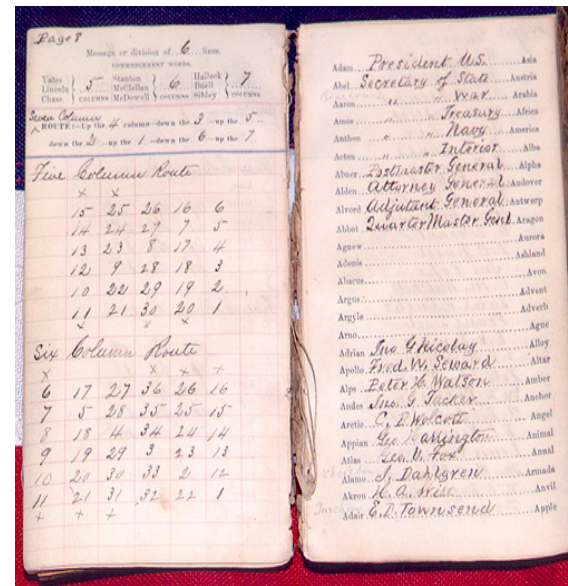 Page 8
Message or division of 6 lines.
COMMENCEMENT WORDS.
Yates
Lincoln
Chase
5 COLUMNS
Stanton
McClellan
McDowell
6 COLUMNS
Halleck
Buell
Sibley
7 COLUMNS
Seven Column
ROUTE:—Up the 4 column—down the 3—up the 5—
down the 2—up the 1—down the 6—up the 7.
Five Column Route
x x
15 25 26 16 6
14 24 27 7 5
13 23 8 17 4
12 9 28 18 3
10 22 29 19 2
11 21 30 20 1
x x x
Six Column Route
x x x x
6 17 27 36 26 16
7 5 28 35 25 15
8 18 4 34 24 14
9 19 29 3 23 13
10 20 30 33 2 12
11 21 31 32 22 1
x x x
Adam President U.S. Asia
Abel Secretary of State Austria
Aaron " " War Arabia
Amos " " Treasury Africa
Anthon " " Navy America
Acton " " Interior Alba
Abner Postmaster General Alpha
Alden Attorney General Andover
Alvord Adjutant General Antwerp
Abbot Quarter Master Genl. Aragon
Agnew Aurora
Adonis Ashland
Abacus Avon
Argus Advent
Argyle Adverb
Arno Ague
Adrian Jno G Nicolay Alloy
Apollo Fred. W. Seward Altar
Alps Peter H. Watson Amber
Andes Jno. G. Tucker Anchor
Arctic C. P. Wolcott Angel
Appian Geo Harrington Animal
Atlas Geo. V. Fox Annal
Alamo J. Dahlgren Armada
Akron Anvil
Adair E. D. Townsend Apple